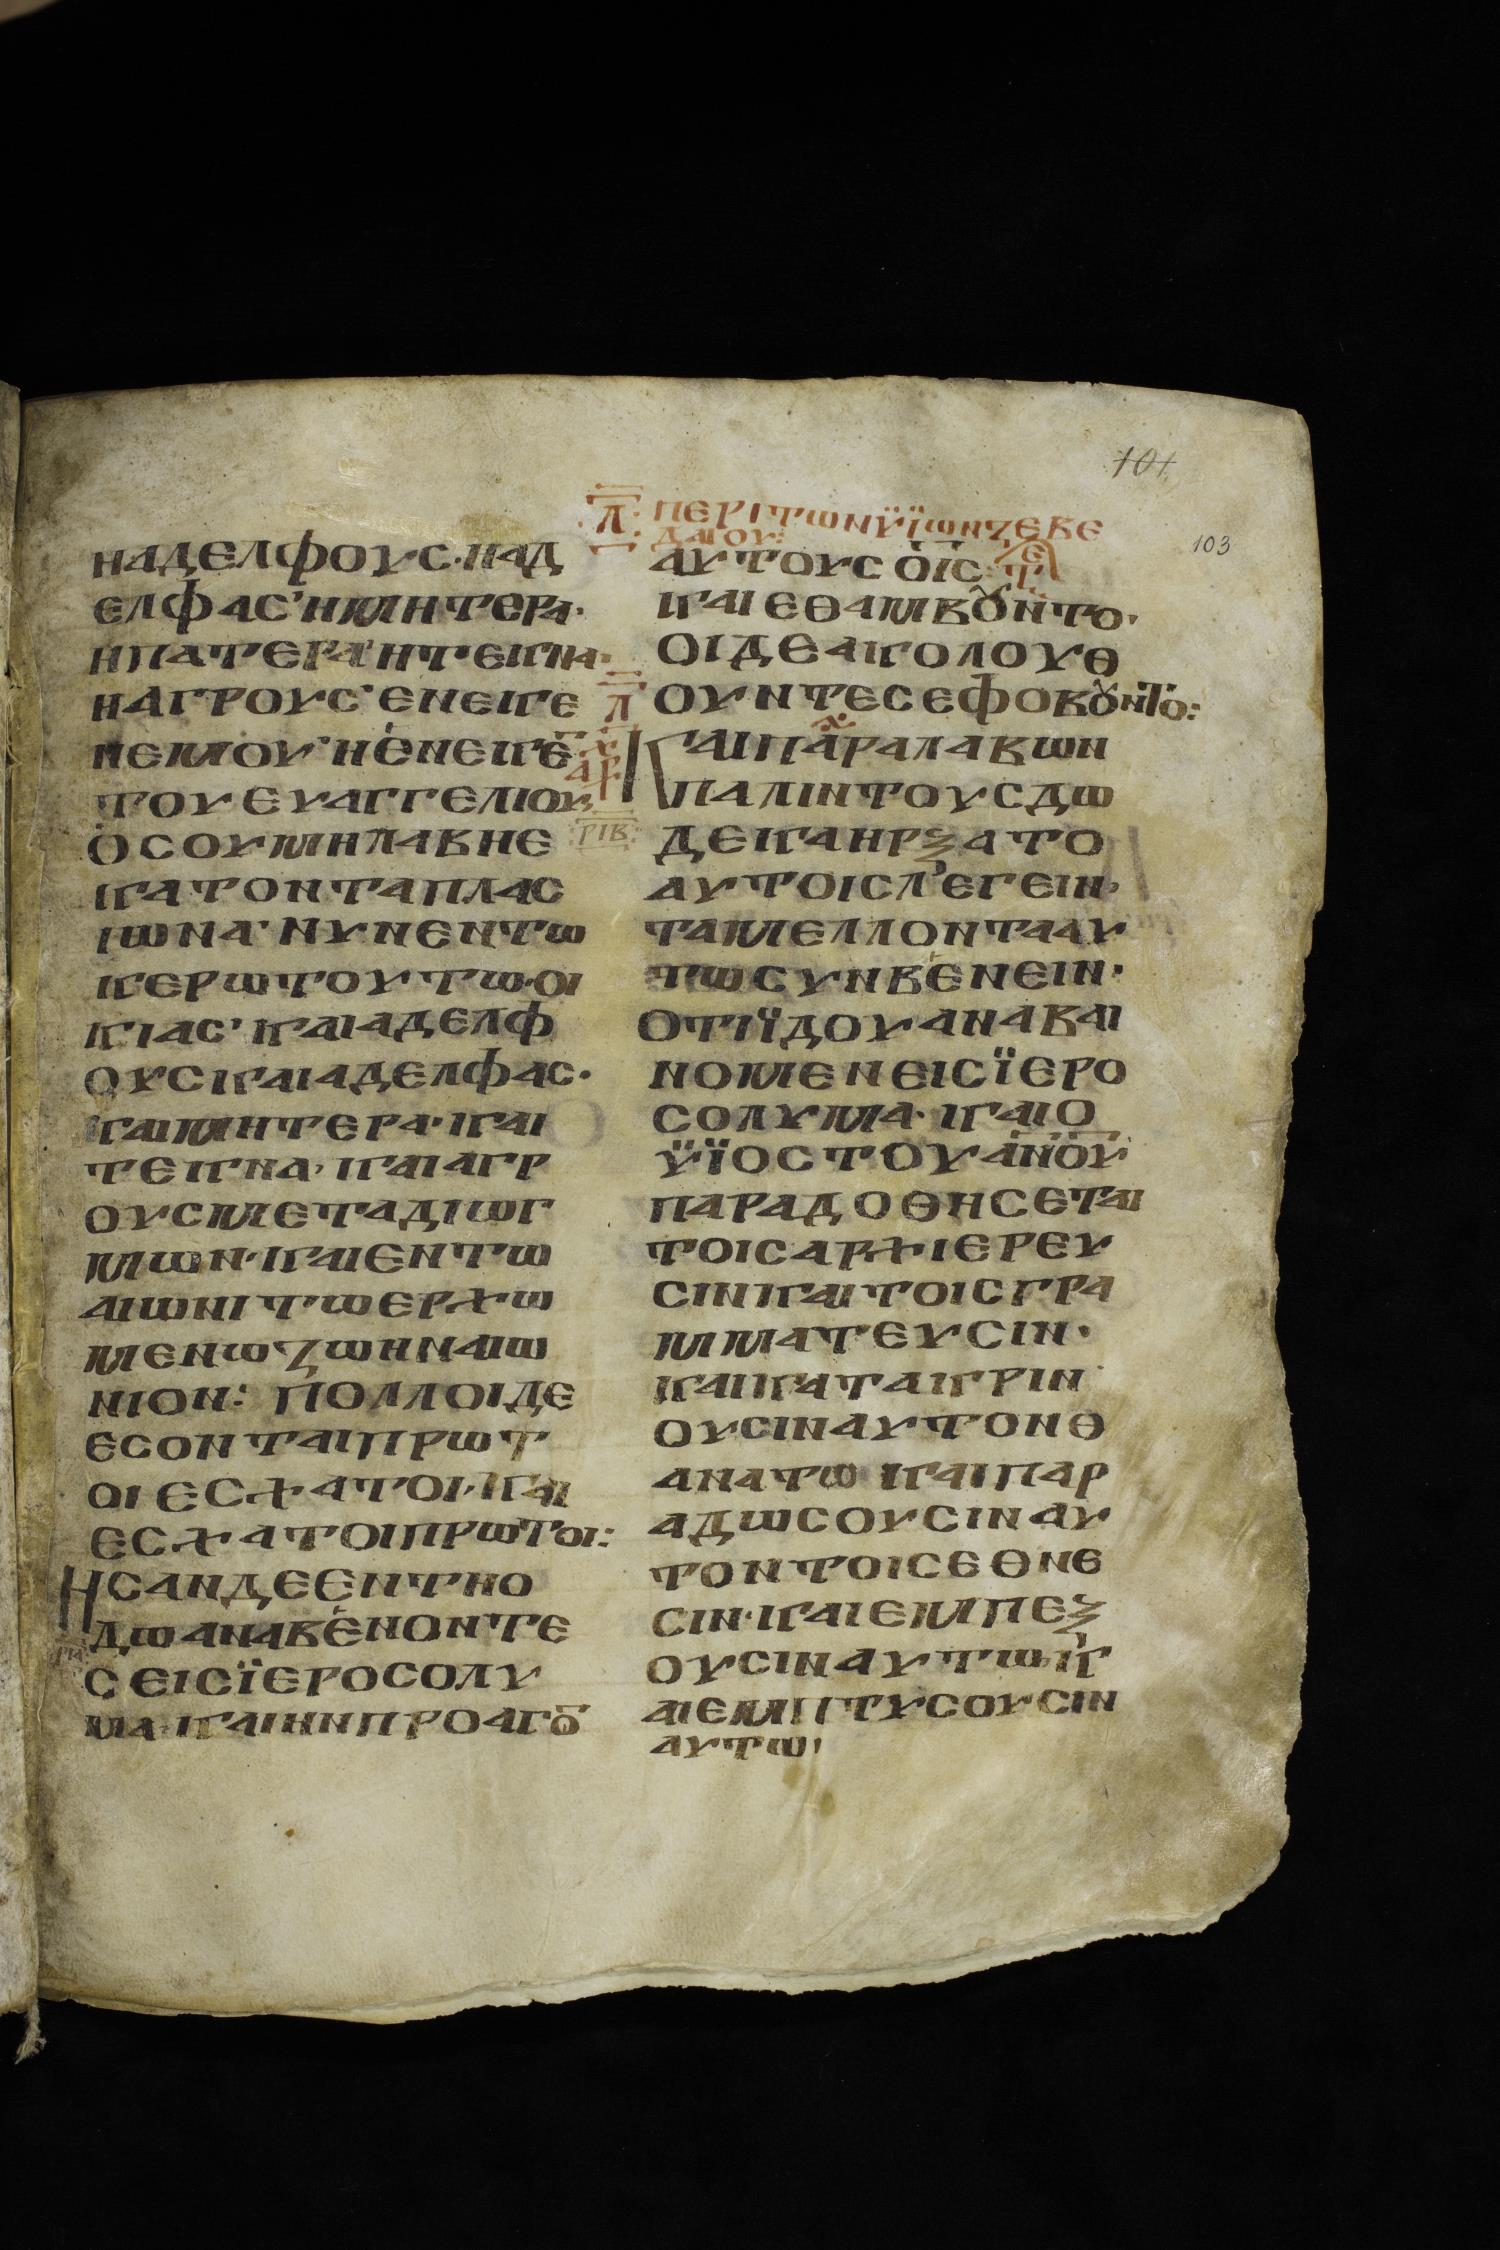 101
103
Λ: ΠΕΡΙΤΩΝΫΪΩΝΖΕΒΕ
ΔΑΙΟΥ:
ΗΑΔΕΛΦΟΥΣ·ΗΑΔ
ΕΛΦΑΣ'ΗΜΗΤΕΡΑ·
ΗΠΑΤΕΡΑ'ΗΤΕΚΝΑ·
ΗΑΓΡΟΥΣ'ΕΝΕΚΕ
ΝΕΜΟΥ'ΗΕΝΕΚΕ
ΤΟΥΕΥΑΓΓΕΛΙΟΥ
ΟΣΟΥΜΗΛΑΒΗΕ
ΚΑΤΟΝΤΑΠΛΑΣ
ΙΩΝΑ'ΝΥΝΕΝΤΩ
ΚΕΡΩΤΟΥΤΩ·ΟΙ
ΚΙΑΣ'ΚΑΙΑΔΕΛΦ
ΟΥΣΚΑΙΑΔΕΛΦΑΣ·
ΚΑΙΜΗΤΕΡΑ·ΚΑΙ
ΤΕΚΝΑ·ΚΑΙΑΓΡ
ΟΥΣΜΕΤΑΔΙΩΓ
ΜΩΝ·ΚΑΙΕΝΤΩ
ΑΙΩΝΙΤΩΕΡΧΩ
ΜΕΝΩΖΩΗΝΑΙΩ
ΝΙΟΝ: ΠΟΛΛΟΙΔΕ
ΕΣΟΝΤΑΙΠΡΩΤ
ΟΙΕΣΧΑΤΟΙ·ΚΑΙ
ΕΣΧΑΤΟΙΠΡΩΤΟΙ:
ΗΣΑΝΔΕΕΝΤΗΟ
ΔΩΑΝΑΒΕΝΟΝΤΕ
ΣΕΙΣΪΕΡΟΣΟΛΥ
ΜΑ·ΚΑΙΗΝΠΡΟΑΓΟ̅
Λ
ΑΡΧ
ΡΙΒ
ΑΥΤΟΥΣΟΙ̅Σ̅
ΚΑΙΕΘΑΜΒȢΝΤΟ·
ΟΙΔΕΑΚΟΛΟΥΘ
ΟΥΝΤΕΣΕΦΟΒȢΝΤΟ:
ΚΑΙΠΑΡΑΛΑΒΩΝ
ΠΑΛΙΝΤΟΥΣΔΩ
ΔΕΚΑΗΡΞΑΤΟ
ΑΥΤΟΙΣΛΕΓΕΙΝ·
ΤΑΜΕΛΛΟΝΤΑΑΥ
ΤΩΣΥΝΒΕΝΕΙΝ·
ΟΤΙΪΔΟΥΑΝΑΒΑΙ
ΝΟΜΕΝΕΙΣΪΕΡΟ
ΣΟΛΥΜΑ·ΚΑΙΟ
ΫΪΟΣΤΟΥΑ̅Ν̅Ο̅Υ̅
ΠΑΡΑΔΟΘΗΣΕΤΑΙ
ΤΟΙΣΑΡΧΙΕΡΕΥ
ΣΙΝΚΑΙΤΟΙΣΓΡΑ
ΜΜΑΤΕΥΣΙΝ·
ΚΑΙΚΑΤΑΚΡΙΝ
ΟΥΣΙΝΑΥΤΟΝΘ
ΑΝΑΤΩ ΚΑΙΠΑΡ
ΑΔΩΣΟΥΣΙΝΑΥ
ΤΟΝΤΟΙΣΕΘΝΕ
ΣΙΝ·ΚΑΙΕΜΠΕΞ
ΟΥΣΙΝΑΥΤΩ·Κ
ΑΙΕΜΠΤΥΣΟΥΣΙΝ
ΑΥΤΩ'